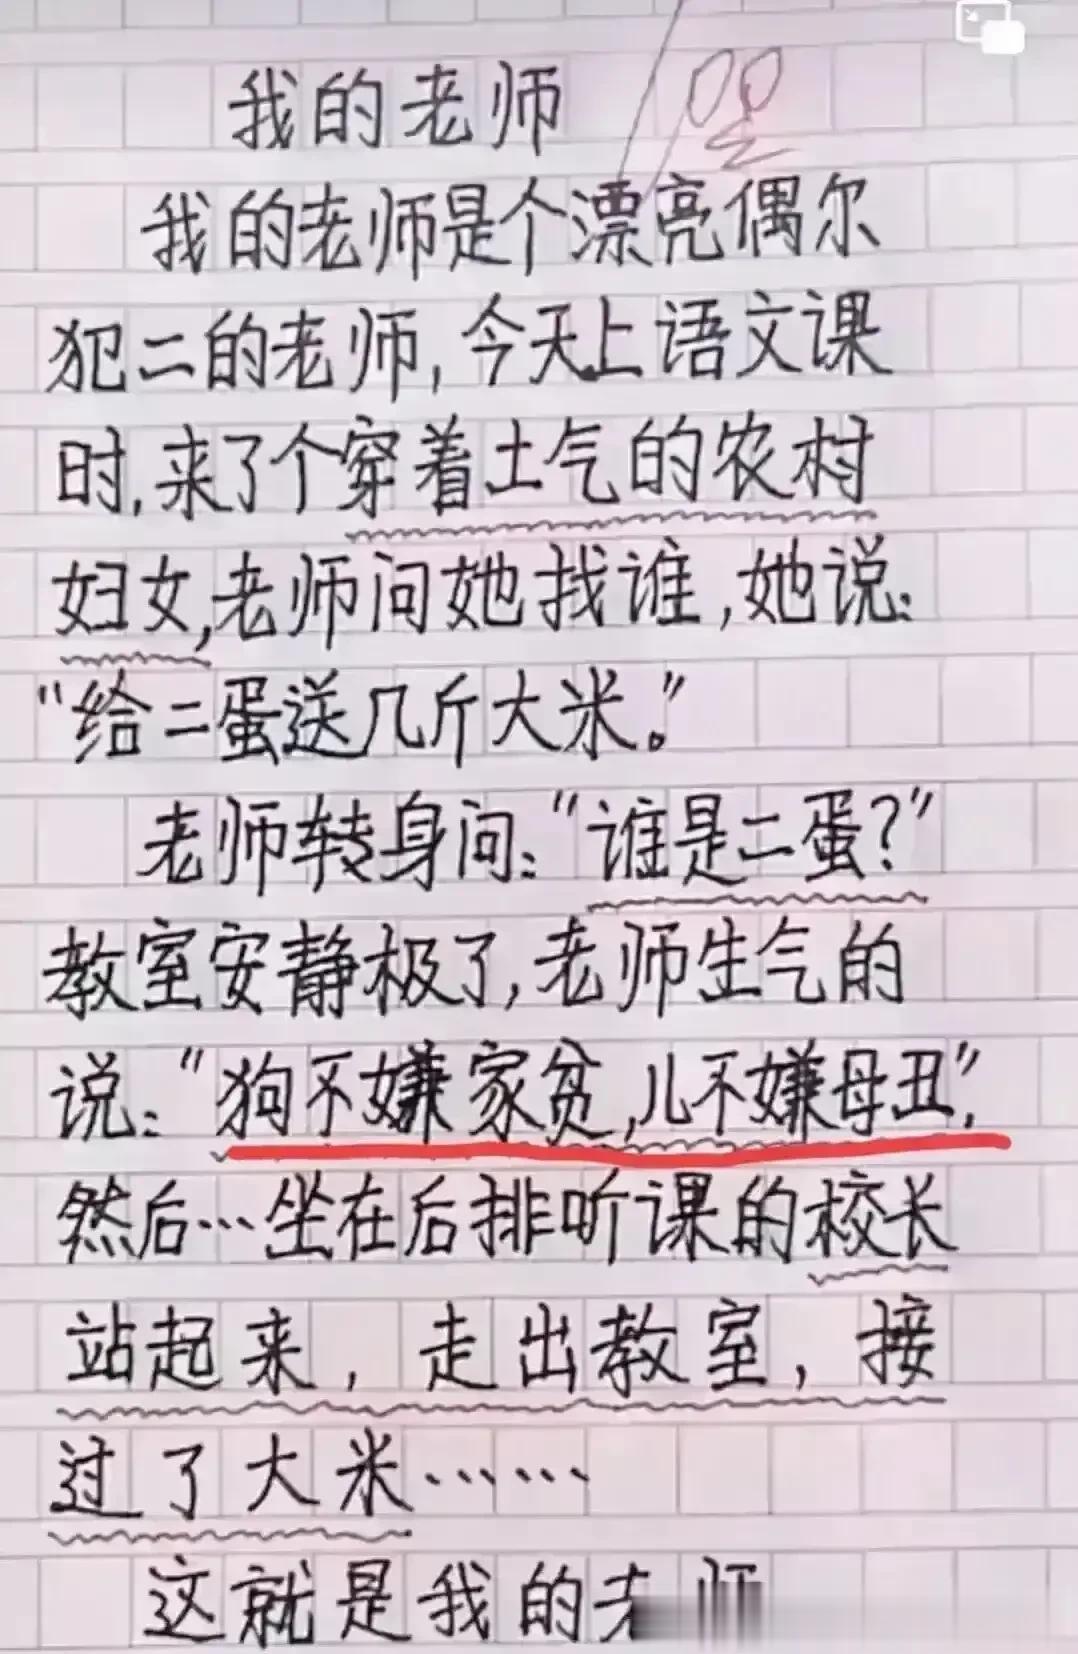 我的老师
我的老师是个漂亮偶尔
犯二的老师,今天上语文课
时,来了个穿着土气的农村
妇女,老师问她找谁,她说:
“给二蛋送几斤大米。”
老师转身问:“谁是二蛋?”
教室安静极了,老师生气的
说:“狗不嫌家贫,儿不嫌母丑”,
然后…坐在后排听课的校长
站起来,走出教室,接
过了大米……
这就是我的老师